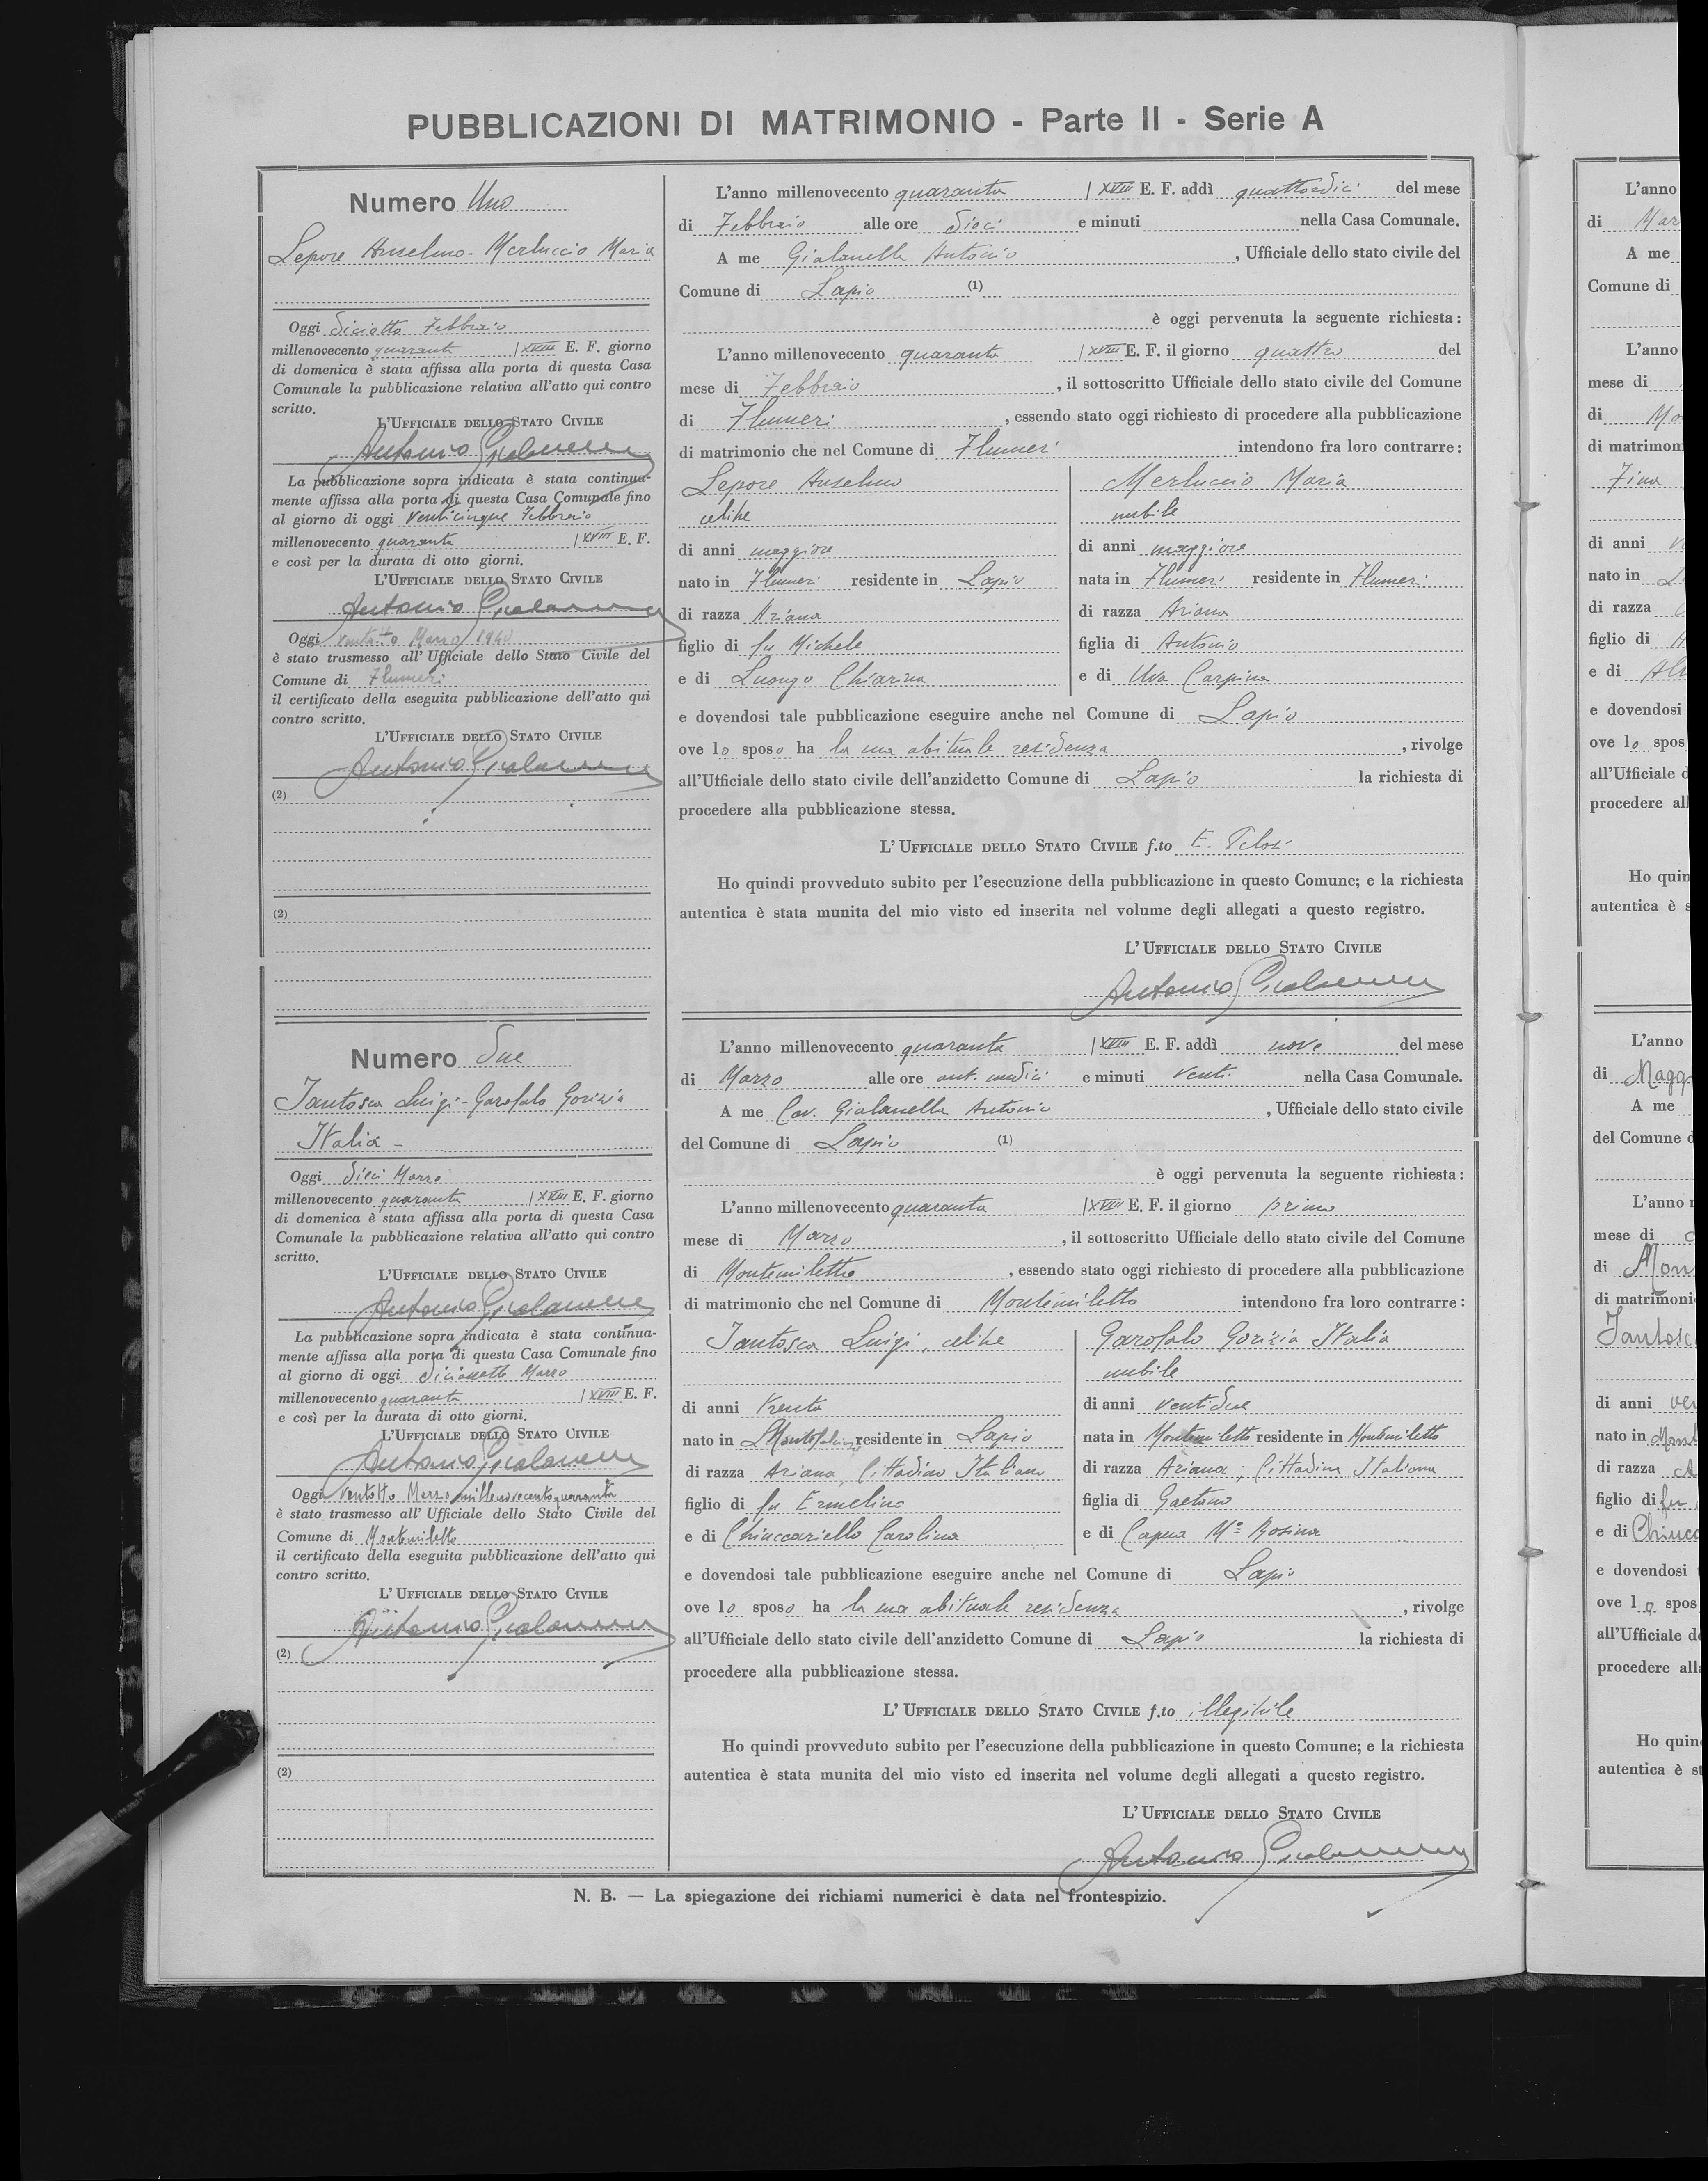 PUBBLICAZIONI DI MATRIMONIO - Parte II - Serie A
Numero Uno
Lepore Anselmo - Merluccio Maria
Oggi diciotto Febbraio
millenovecento quaranta | XVIII E. F. giorno
di domenica è stata affissa alla porta di questa Casa
Comunale la pubblicazione relativa all'atto qui contro
scritto.
L'UFFICIALE DELLO STATO CIVILE
Antonio Gialanella
La pubblicazione sopra indicata è stata continua-
mente affissa alla porta di questa Casa Comunale fino
al giorno di oggi venticinque Febbraio
millenovecento quaranta | XVIII E. F.
e così per la durata di otto giorni.
L'UFFICIALE DELLO STATO CIVILE
Antonio Gialanella
Oggi ventotto Marzo 1940
è stato trasmesso all' Ufficiale dello Stato Civile del
Comune di Flumeri
il certificato della eseguita pubblicazione dell'atto qui
contro scritto.
L'UFFICIALE DELLO STATO CIVILE
Antonio Gialanella
(2)
(2)
L'anno millenovecento quaranta | XVIII E. F. addì quattordici del mese
di Febbraio alle ore dieci e minuti nella Casa Comunale.
A me Gialanella Antonio , Ufficiale dello stato civile del
Comune di Lapio (1)
è oggi pervenuta la seguente richiesta:
L'anno millenovecento quaranta | XVIII E. F. il giorno quattro del
mese di Febbraio , il sottoscritto Ufficiale dello stato civile del Comune
di Flumeri , essendo stato oggi richiesto di procedere alla pubblicazione
di matrimonio che nel Comune di Flumeri intendono fra loro contrarre:
Lepore Anselmo
celibe
di anni maggiore
nato in Flumeri residente in Lapio
di razza Ariana
figlio di fu Michele
e di Luongo Chiarina
Merluccio Maria
nubile
di anni maggiore
nata in Flumeri residente in Flumeri
di razza Ariana
figlia di Antonio
e di Uva Carpina
e dovendosi tale pubblicazione eseguire anche nel Comune di Lapio
ove lo sposo ha la sua abituale residenza , rivolge
all'Ufficiale dello stato civile dell'anzidetto Comune di Lapio la richiesta di
procedere alla pubblicazione stessa.
L' UFFICIALE DELLO STATO CIVILE f.to E.
Ho quindi provveduto subito per l'esecuzione della pubblicazione in questo Comune; e la richiesta
autentica è stata munita del mio visto ed inserita nel volume degli allegati a questo registro.
L' UFFICIALE DELLO STATO CIVILE
Antonio Gialanella
Numero due
Iantosca Luigi - Garofalo Gorizia
Italia -
Oggi dieci Marzo
millenovecento quaranta | XVIII E. F. giorno
di domenica è stata affissa alla porta di questa Casa
Comunale la pubblicazione relativa all'atto qui contro
scritto.
L'UFFICIALE DELLO STATO CIVILE
Antonio Gialanella
La pubblicazione sopra indicata è stata continua-
mente affissa alla porta di questa Casa Comunale fino
al giorno di oggi diciassette Marzo
millenovecento quaranta | XVIII E. F.
e così per la durata di otto giorni.
L'UFFICIALE DELLO STATO CIVILE
Antonio Gialanella
Oggi ventotto Marzo millenovecentoquaranta
è stato trasmesso all' Ufficiale dello Stato Civile del
Comune di Montemiletto
il certificato della eseguita pubblicazione dell'atto qui
contro scritto.
L' UFFICIALE DELLO STATO CIVILE
Antonio Gialanella
(2)
(2)
L'anno millenovecento quaranta | XVIII E. F. addì nove del mese
di Marzo alle ore ant. undici e minuti venti nella Casa Comunale.
A me Cav. Gialanella Antonio , Ufficiale dello stato civile
del Comune di Lapio (1)
è oggi pervenuta la seguente richiesta:
L'anno millenovecento quaranta | XVIII E. F. il giorno primo
mese di Marzo , il sottoscritto Ufficiale dello stato civile del Comune
di Montemiletto , essendo stato oggi richiesto di procedere alla pubblicazione
di matrimonio che nel Comune di Montemiletto intendono fra loro contrarre:
Iantosca Luigi, celibe
di anni trenta
nato in residente in Lapio
di razza Ariana, Cittadino Italiano
figlio di fu Ermelino
e di Chiuccariello Carolina
Garofalo Gorizia Italia
nubile
di anni ventidue
nata in Montemiletto residente in Montemiletto
di razza Ariana, Cittadina Italiana
figlia di Gaetano
e di Capua Mª Rosina
e dovendosi tale pubblicazione eseguire anche nel Comune di Lapio
ove lo sposo ha la sua abituale residenza , rivolge
all'Ufficiale dello stato civile dell'anzidetto Comune di Lapio la richiesta di
procedere alla pubblicazione stessa.
L' UFFICIALE DELLO STATO CIVILE f.to illegibile
Ho quindi provveduto subito per l'esecuzione della pubblicazione in questo Comune; e la richiesta
autentica è stata munita del mio visto ed inserita nel volume degli allegati a questo registro.
L' UFFICIALE DELLO STATO CIVILE
Antonio Gialanella
N. B. — La spiegazione dei richiami numerici è data nel frontespizio.
L'anno
di Mar
A me
Comune di
L'anno
mese di
di Mo
di matrimoni
Fina
di anni
nato in
di razza
figlio di
e di
e dovendosi
ove lo spos
all'Ufficiale d
procedere al
Ho quin
autentica è s
L'anno
di Magg
A me
del Comune d
L'anno
mese di
di Mon
di matrimoni
Iantosc
di anni ven
nato in Mont
di razza A
figlio di fu
e di Chiucc
e dovendosi
ove lo spos
all'Ufficiale d
procedere all
Ho quin
autentica è st